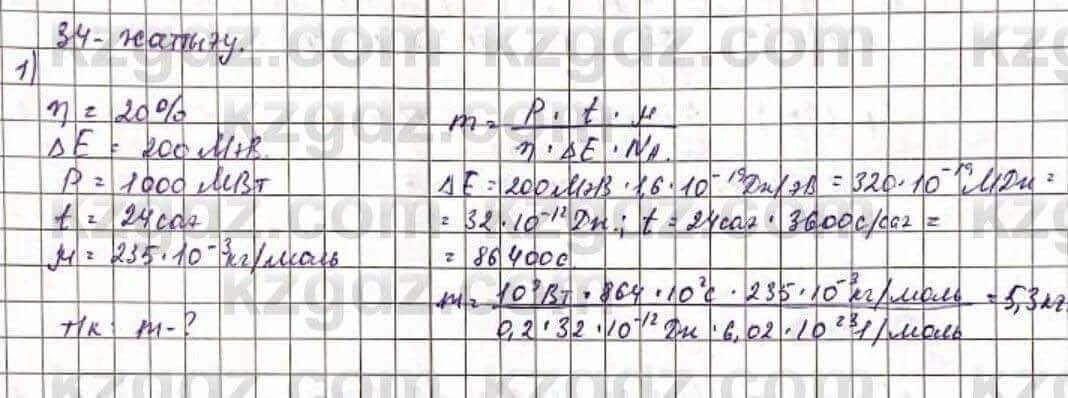 34-жаттығу.
1)
η = 20%
ΔE = 200 МэВ.
P = 1000 МВт
t = 24 сағ
μ = 235·10⁻³ кг/моль
Т/к: m-?
m = P · t · μ / η · ΔE · N_A.
ΔE = 200 МэВ · 1,6 · 10⁻¹⁹ Дж/эВ = 320·10⁻¹⁹ МДж =
= 32·10⁻¹² Дж.; t = 24 сағ · 3600 с/сағ =
= 86400 с.
m = 10⁹ Вт · 864 · 10² с · 235·10⁻³ кг/моль / 0,2 · 32 · 10⁻¹² Дж · 6,02 · 10²³ 1/моль = 5,3 кг.
kzgdz.com